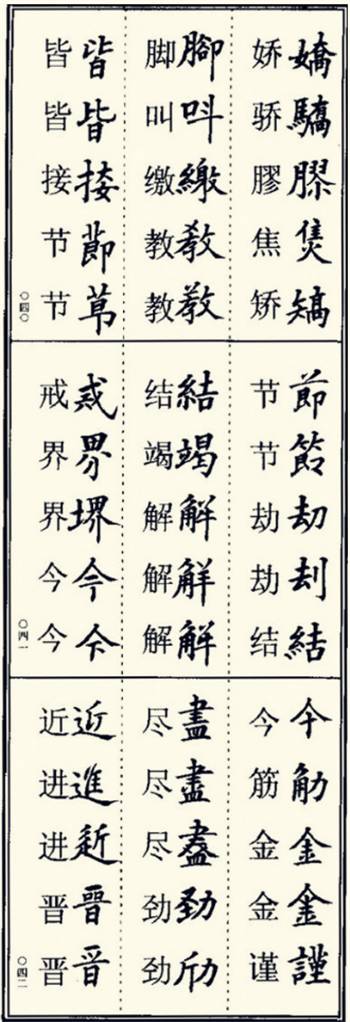 嬌驕膠焦矯
娇骄膠焦矫
腳呌繳教教
脚叫缴教教
皆皆接節莭
皆皆接节节
〇四〇
節節劫刦結
节节劫劫结
結竭解觧解
结竭解解解
戒界堺今今
戒界界今今
〇四一
今筋金金謹
今筋金金谨
盡盡盡勁
尽尽尽劲劲
近進進晉晋
近进进晋晋
〇四二